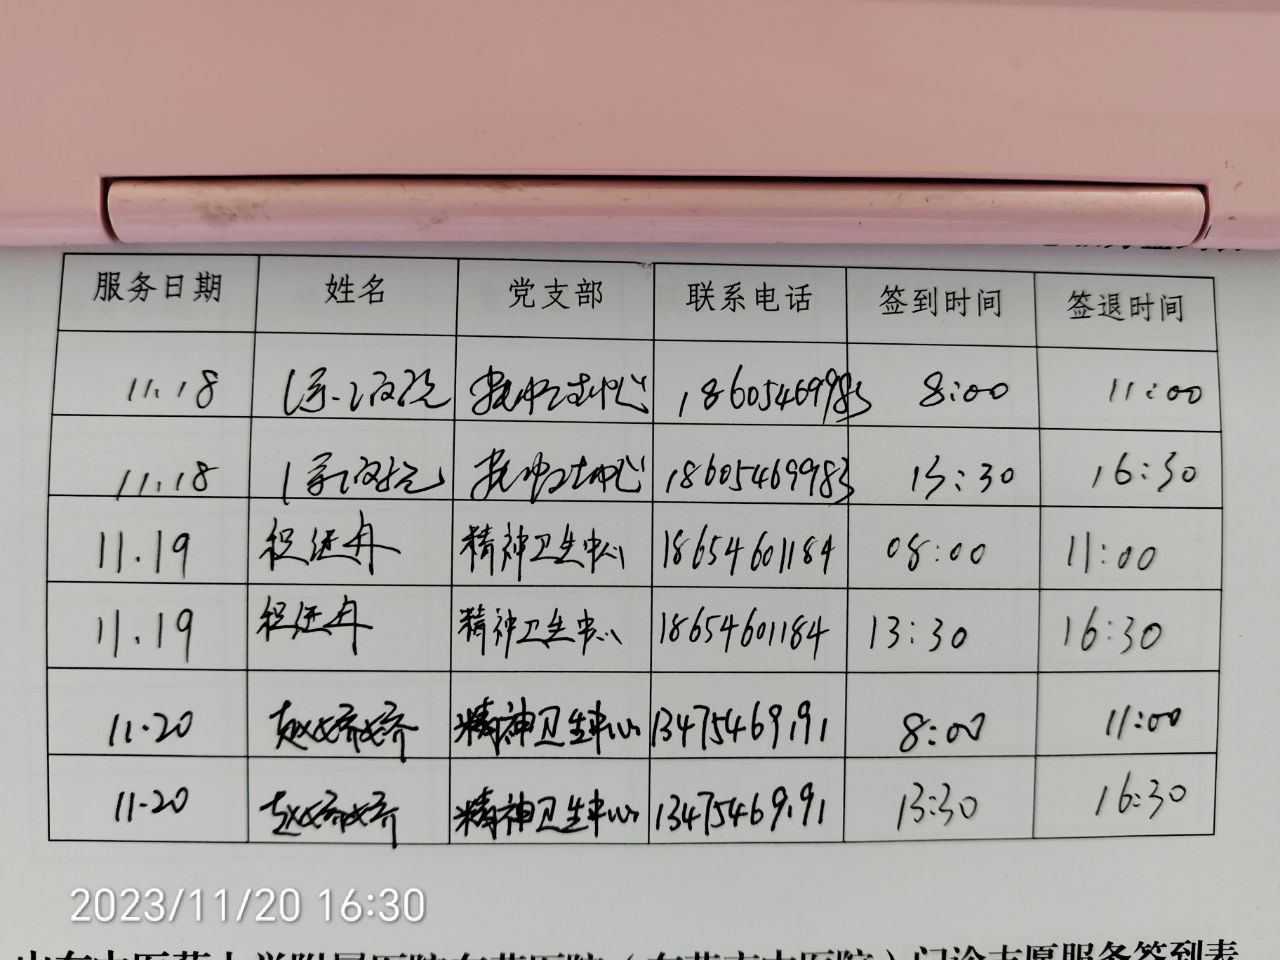 服务日期 姓名 党支部 联系电话 签到时间 签退时间
11.18 18605469983 8:00 11:00
11.18 18605469983 13:30 16:30
11.19 精神卫生中心 18654601184 08:00 11:00
11.19 精神卫生中心 18654601184 13:30 16:30
11.20 赵娇娇 精神卫生中心 13475469191 8:00 11:00
11.20 赵娇娇 精神卫生中心 13475469191 13:30 16:30
2023/11/20 16:30
山东中医药大学附属医院东营医院（东营市中医院）门诊志愿服务签到表